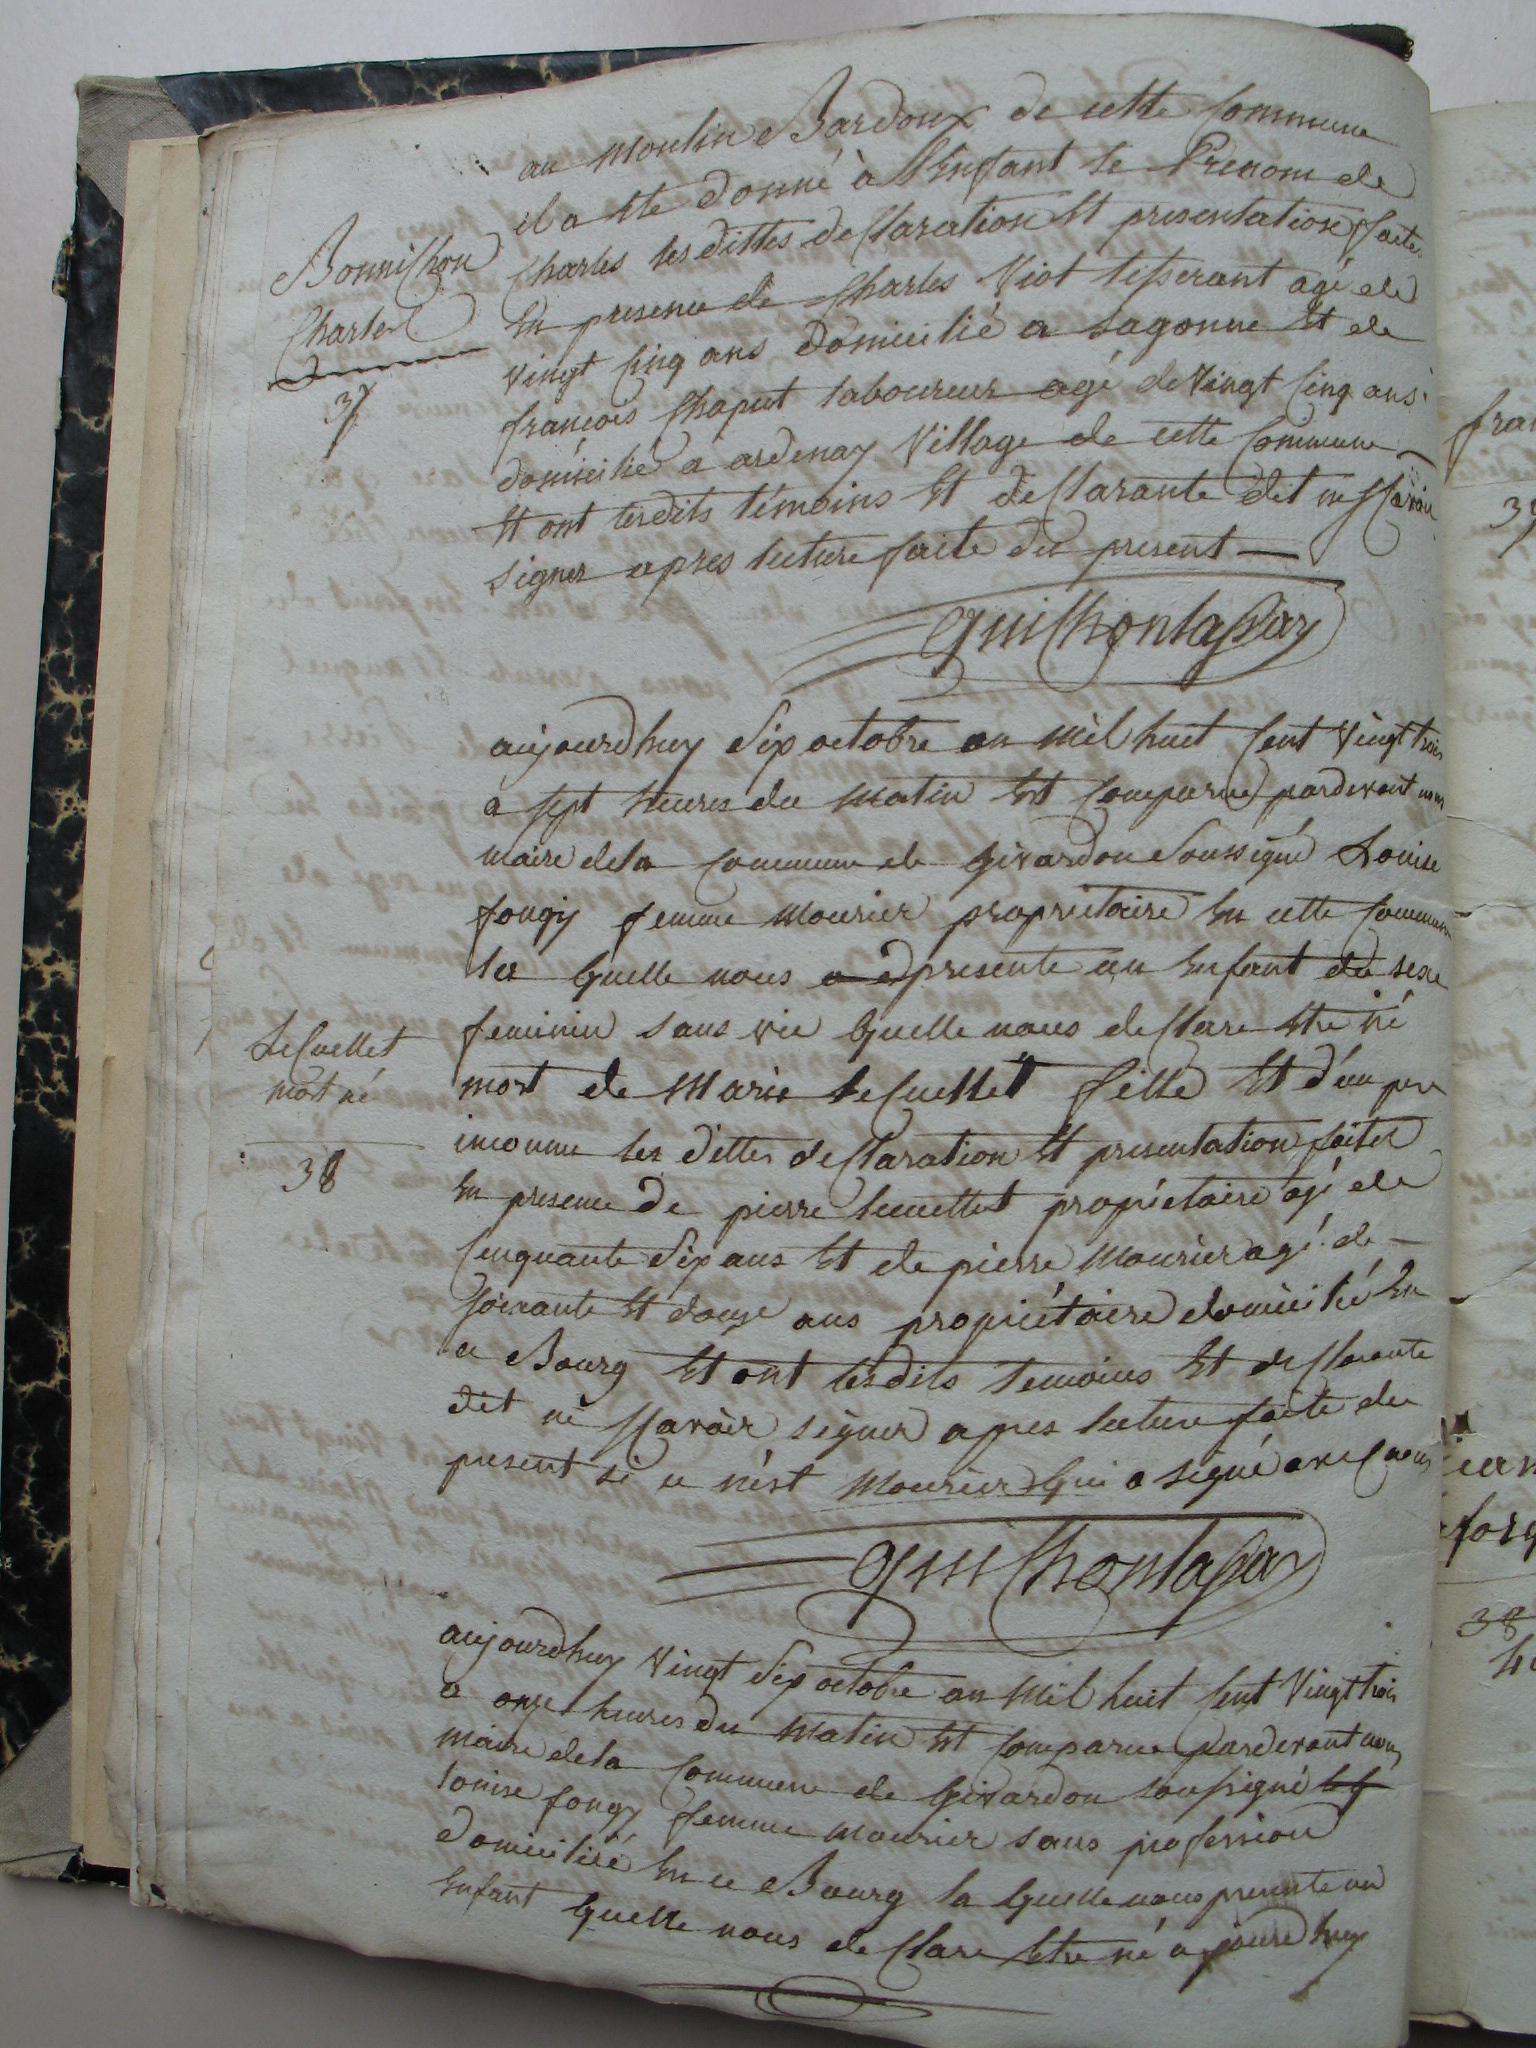 au moulin Bardoux de cette Commune
il a ete donné à l'Enfant le Prenom de
Bonnichon
Charles
37
Charles les dittes declaration Et presentation faites
En presence de Charles Viot tesserant agé de
vingt cinq ans domicilié a Sagonne Et de
françois Chaput laboureur agé de Vingt cinq ans
domicilié a ardenay Village de cette Commune
Et ont lesdits témoins Et declarante dit ne scavoir
signer apres lecture faite du present
Guilhonlassay
aujourdhuy six octobre an mil huit Cent Vingt trois
a sept heures du matin Est Comparue pardevant nous
maire dela Commune de Givardon Soussigné Louise
fougy femme mourier propriétaire En cette Commune
la quelle nous a presente un Enfant du sexe
Lecuellet
mort né
38
feminin sans vie quelle nous declare Etre né
mort de Marie Lecuellet fille Et d'un pere
inconnu les dittes declaration Et presentation faites
En presence de pierre lecuellet propriétaire agé de
Cinquante six ans Et de pierre Mourier agé de
soixante Et douze ans propriétaire domicilié En
ce Bourg Et ont lesdits temoins Et declarante
dit ne scavoir signer apres lecture faite du
present si ce n'est mourier qui a signé avec nous
Guilhonlassay
aujourdhuy Vingt six octobre an mil huit Cent Vingt trois
a onze heures du matin Est Comparue pardevant nous
maire dela Commune de Givardon soussigné
Louise fougy femme mourier sans profession
domicilié En ce Bourg la quelle nous presente un
Enfant quelle nous declare Etre né aujourdhuy
38